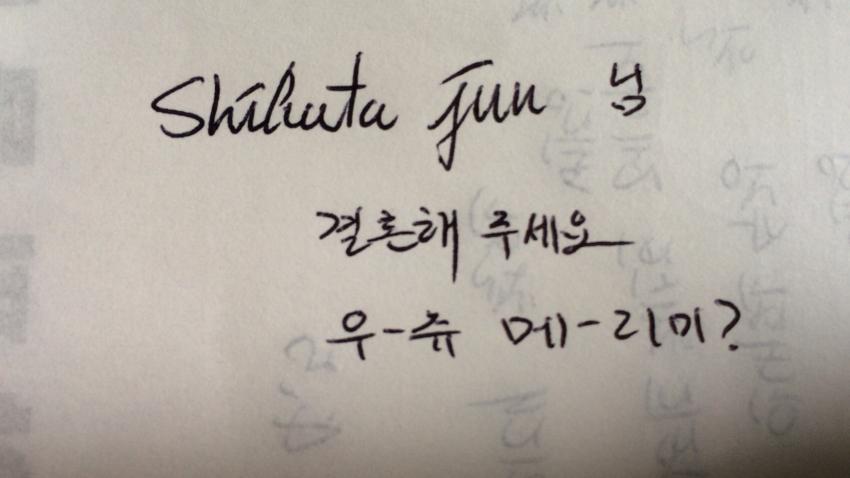 Shibuta jun 님
결혼해 주세요
우-쥬 메-리미?